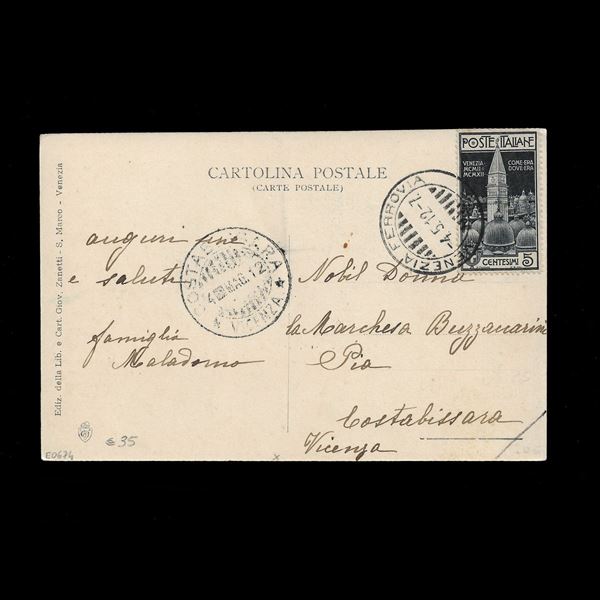 CARTOLINA POSTALE
(CARTE POSTALE)
POSTE ITALIANE
VENEZIA
MCMII
MCMXII
COM'ERA
DOV'ERA
CENTESIMI 5
VENEZIA FERROVIA
4.5.12-7
VICENZA
auguri
e saluti
famiglia
Nobil Donna
la Marchesa Buzzacarini
Pia
Costabissara
Vicenza
Ediz. della Lib. e Cart. Giov. Zanetti - S. Marco - Venezia
€ 35
E0674